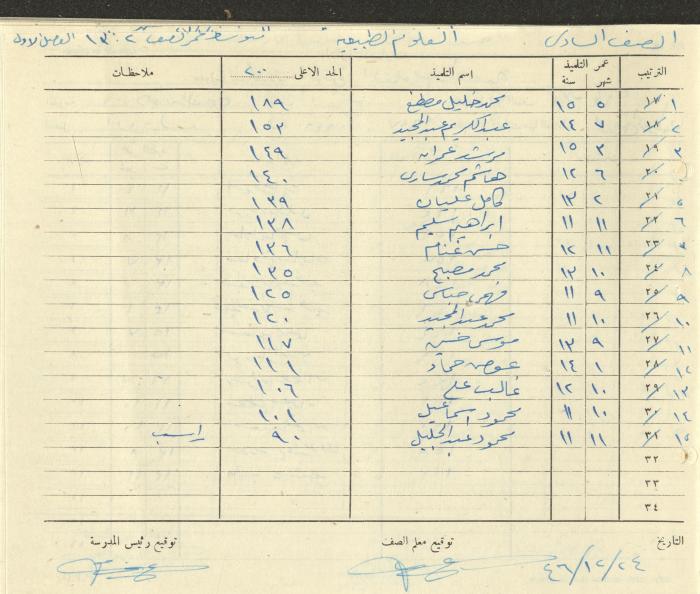 الصف السادس العلوم الطبيعية الفصل الاول
الترتيب عمر التلميذ شهر سنة اسم التلميذ الحد الاعلى ٢٠٠ ملاحظات
١ ١٧ ٥ ١٥ محمد خليل مصطفى ١٨٩
٢ ١٨ ٧ ١٤ عبد الكريم عبد المجيد ١٥٣
٣ ١٩ ٣ ١٥ مرشد عمران ١٤٩
٢٠ ٦ ١٢ هاشم محمد ساري ١٤٠
٥ ٢١ ٢ ١٣ كامل عليان ١٣٩
٦ ٢٢ ١١ ١١ ابراهيم سليم ١٣٨
٢٣ ١١ ١٢ حسن غنام ١٣٦
٨ ٢٤ ١٠ ١٣ محمد مصبح ١٣٥
٩ ٢٥ ٩ ١١ ١٢٥
١٠ ٢٦ ١٠ ١١ محمد عبد المجيد ١٢٠
١١ ٢٧ ٩ ١٣ موسى حسين ١١٧
١٢ ٢٨ ١ ١٤ عوض حماد ١١١
١٣ ٢٩ ١٠ ١٢ غالب علي ١٠٦
١٤ ٣٠ ١٠ ١١ محمود اسماعيل ١٠١
١٥ ٣١ ١١ ١١ محمود عبد الجليل ٩٠ راسب
٣٢
٣٣
٣٤
التاريخ توقيع معلم الصف توقيع رئيس المدرسة
٤٦/١٢/٢٤